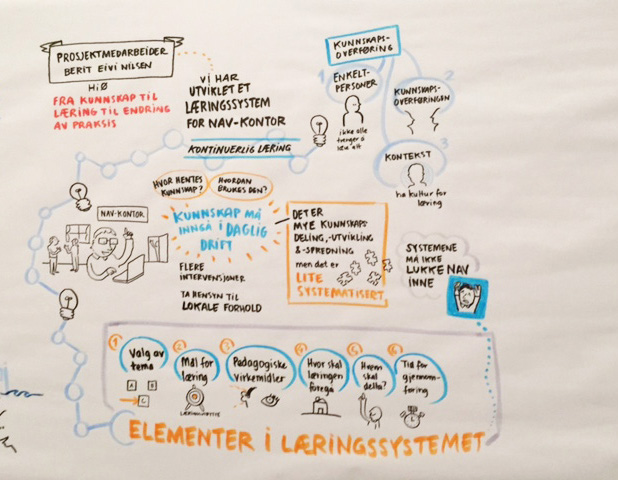 PROSJEKTMEDARBEIDER
BERIT EIVI NILSEN
HiØ
FRA KUNNSKAP TIL
LÆRING TIL ENDRING
AV PRAKSIS
VI HAR
UTVIKLET ET
LÆRINGSSYSTEM
FOR NAV-KONTOR
KONTINUERLIG LÆRING
KUNNSKAPS-
OVERFØRING
1
ENKELT-
PERSONER
ikke alle
trenger å
lære alt
2
KUNNSKAPS-
OVERFØRINGEN
3
KONTEKST
ha kultur for
læring
HVOR HENTES
KUNNSKAP?
HVORDAN
BRUKES DEN?
NAV-KONTOR
KUNNSKAP MÅ
INNGÅ I DAGLIG
DRIFT
FLERE
INTERVENSJONER
TA HENSYN TIL
LOKALE FORHOLD
DET ER
MYE KUNNSKAPS
DELING,-UTVIKLING
&-SPREDNING
men det er
LITE
SYSTEMATISERT.
SYSTEMENE
MÅ IKKE
LUKKE NAV
INNE
1
Valg av
tema
A B
C
2
Mål for
læring
3
Pedagogiske
virkemidler
4
Hvor skal
læringen
foregå
5
Hvem
skal
delta?
6
Tid for
gjennom-
føring
ELEMENTER I LÆRINGSSYSTEMET